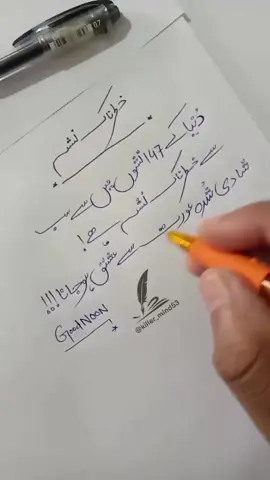 خطرناک نشہ
دنیا کے 147 نشوں میں سے سب
سے خطرناک نشہ ہے!
شادی شدہ عورت سے عشق ہو جانا!!!
Good NOON
@killer_mind53